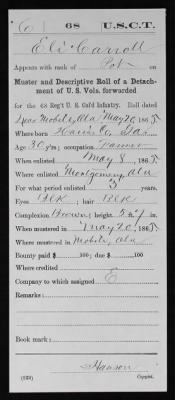 C 68 U.S.C.T.
Eli Carroll
Appears with rank of Pvt on
Muster and Descriptive Roll of a Detach-
ment of U. S. Vols. forwarded
for the 68 Reg't U. S. Col'd Infantry. Roll dated
Near Mobile, Ala May 20, 1865
Where born Harris Co, Ga
Age 30 y'rs; occupation Farmer
When enlisted May 8, 1865
Where enlisted Montgomery, Ala
For what period enlisted 3 years.
Eyes Blk; hair Blk
Complexion Brown; height 5 ft. in.
When mustered in May 20, 1865
Where mustered in Mobile, Ala
Bounty paid $ 100; due $ 100
Where credited
Company to which assigned E
Remarks:
Book mark:
Hanson
Copyist.